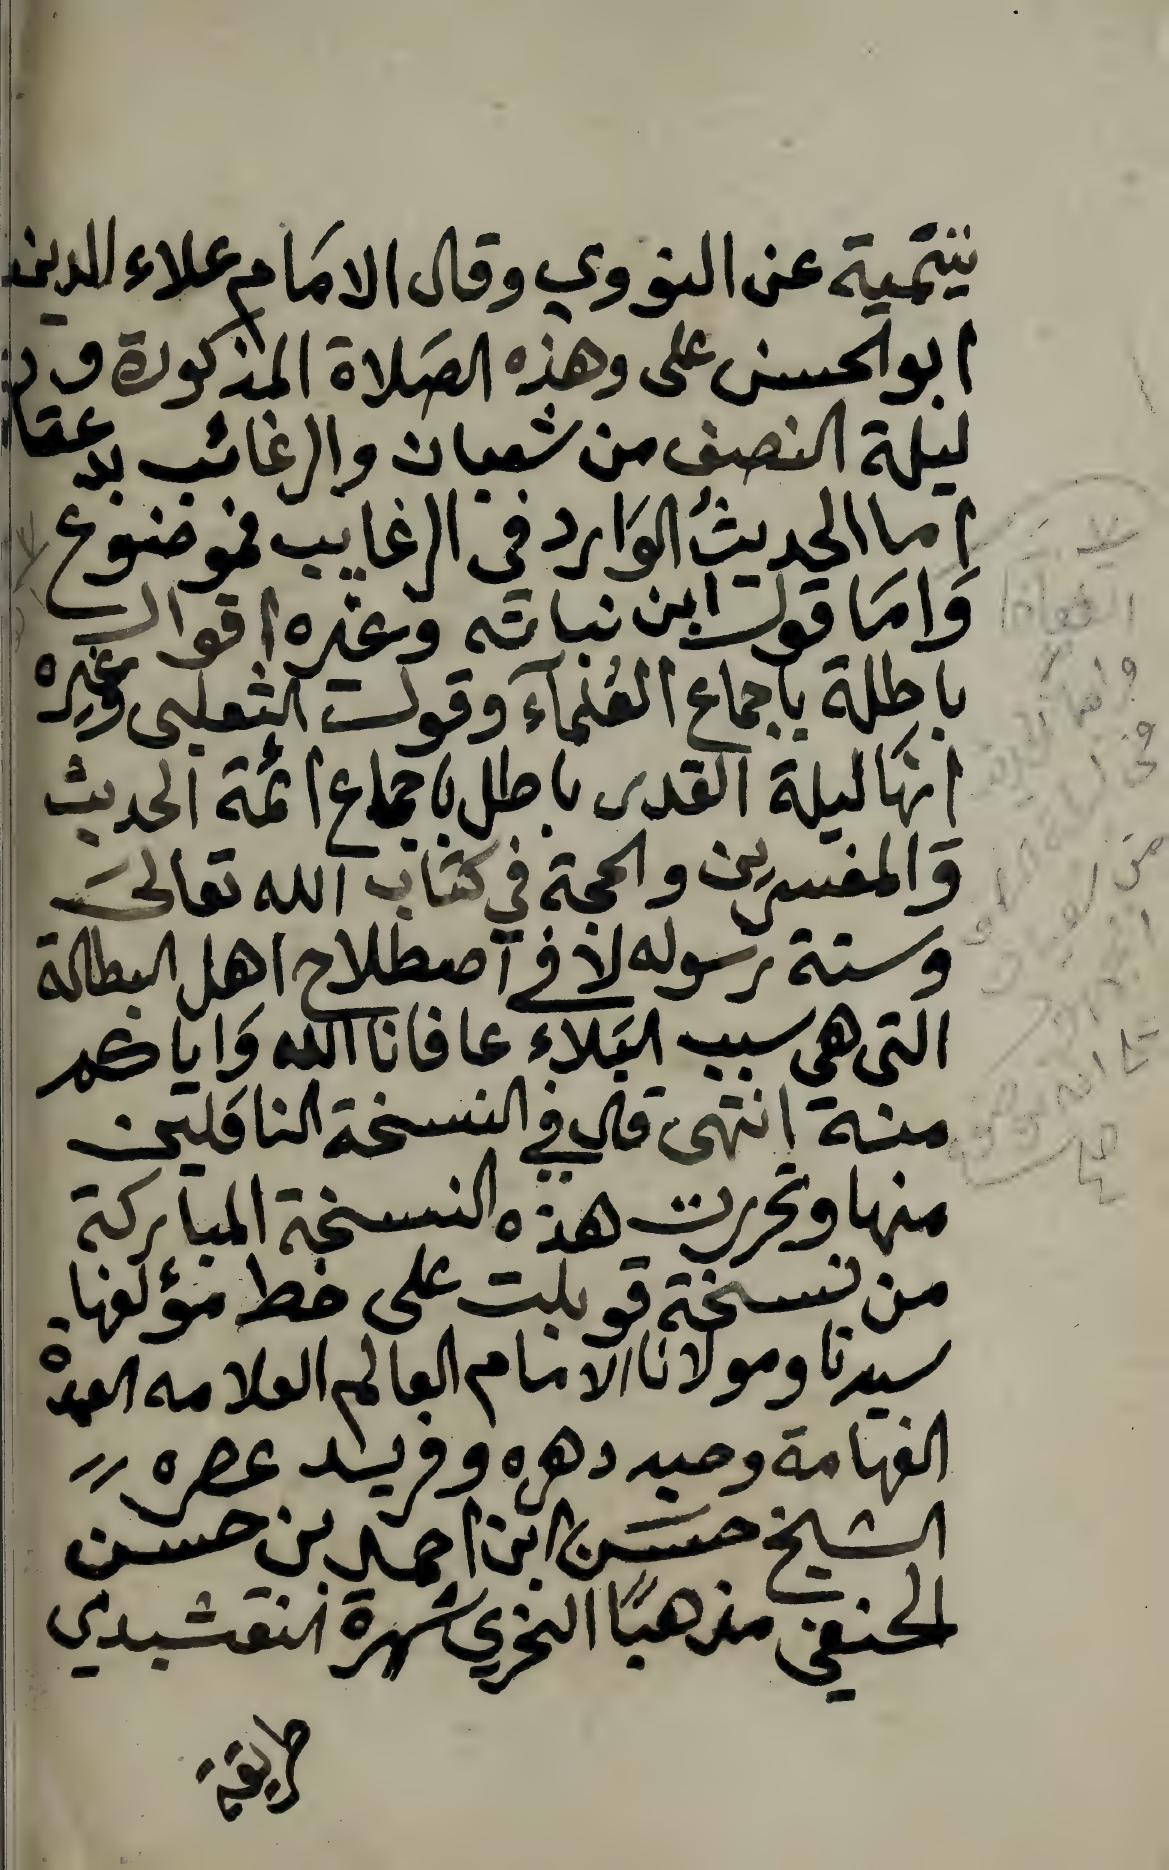 نيتمية عن النووي وقال الامام علاء الدين
ابو الحسن على وهذه الصلاة المذكورة في
ليلة النصف من شعبان والرغائب بدعتا
اما الحديث الوارد في الرغايب فموضوع
وَامَا قول ابن نباته وغيره اقوال
باطلة باجماع العُلمآء وقول الثعلبى وغيره
انها ليلة القدر باطل باجماع ائمة الحديث
وَالمفسرين والحجة في كتاب الله تعالى
وسنة رسوله لا في اصطلاح اهل البطالة
التى هي سبب البَلاء عافانا الله وَاياكم
منة انتهى قال في النسخة الناقلين
منها وتحررت هذه النسخة المباركة
من نسخة قوبلت على خط مؤلفها
سيدنا ومولانا الامام العالم العلامه العمدة
الفهامة وحيد دهره وفريد عصره
الشيخ حسَن ابن احمد بن حسن
الحنفي مذهبًا النخري شهرة النقشبدي
طريقة